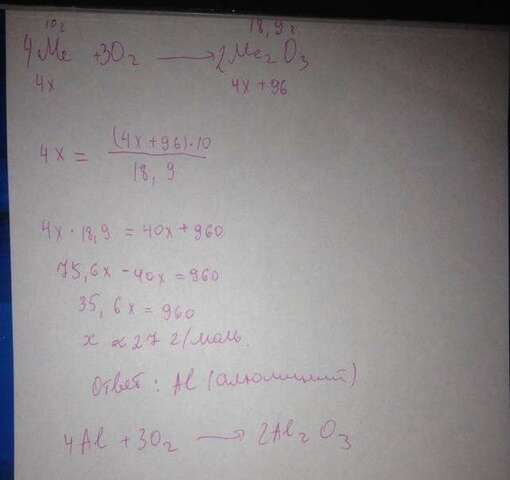 10г 18,9г
4Me + 3O₂ → 2Me₂O₃
4x 4x + 96
4x = (4x + 96)·10 / 18,9
4x · 18,9 = 40x + 960
75,6x - 40x = 960
35,6x = 960
x ≈ 27 г/моль.
Ответ: Al (алюминий)
4Al + 3O₂ → 2Al₂O₃